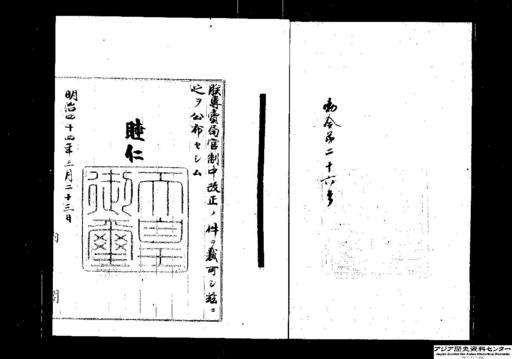 勅令第二十六号
朕専賣局官制中改正ノ件ヲ裁可シ茲ニ
之ヲ公布セシム
睦仁
天皇御璽
明治四十四年三月二十三日
内閣
アジア歴史資料センター
Japan Center for Asian Historical Records